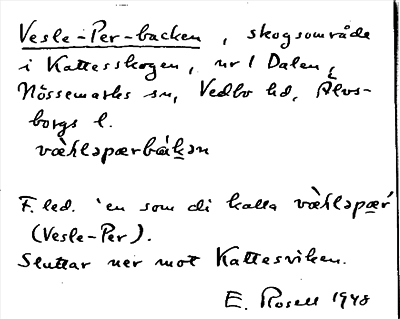 Vesle-Per-backen, skogsområde
i Kattesskogen, nr 1 Dalen,
Nössemarks sn, Vedbo hd, Älvs-
borgs l.
væ̀hləpærbákən
F. led. 'en som di kalla væ̀hləpær'
(Vesle-Per).
Sluttar ner mot Kattesviken.
E. Rosell 1948